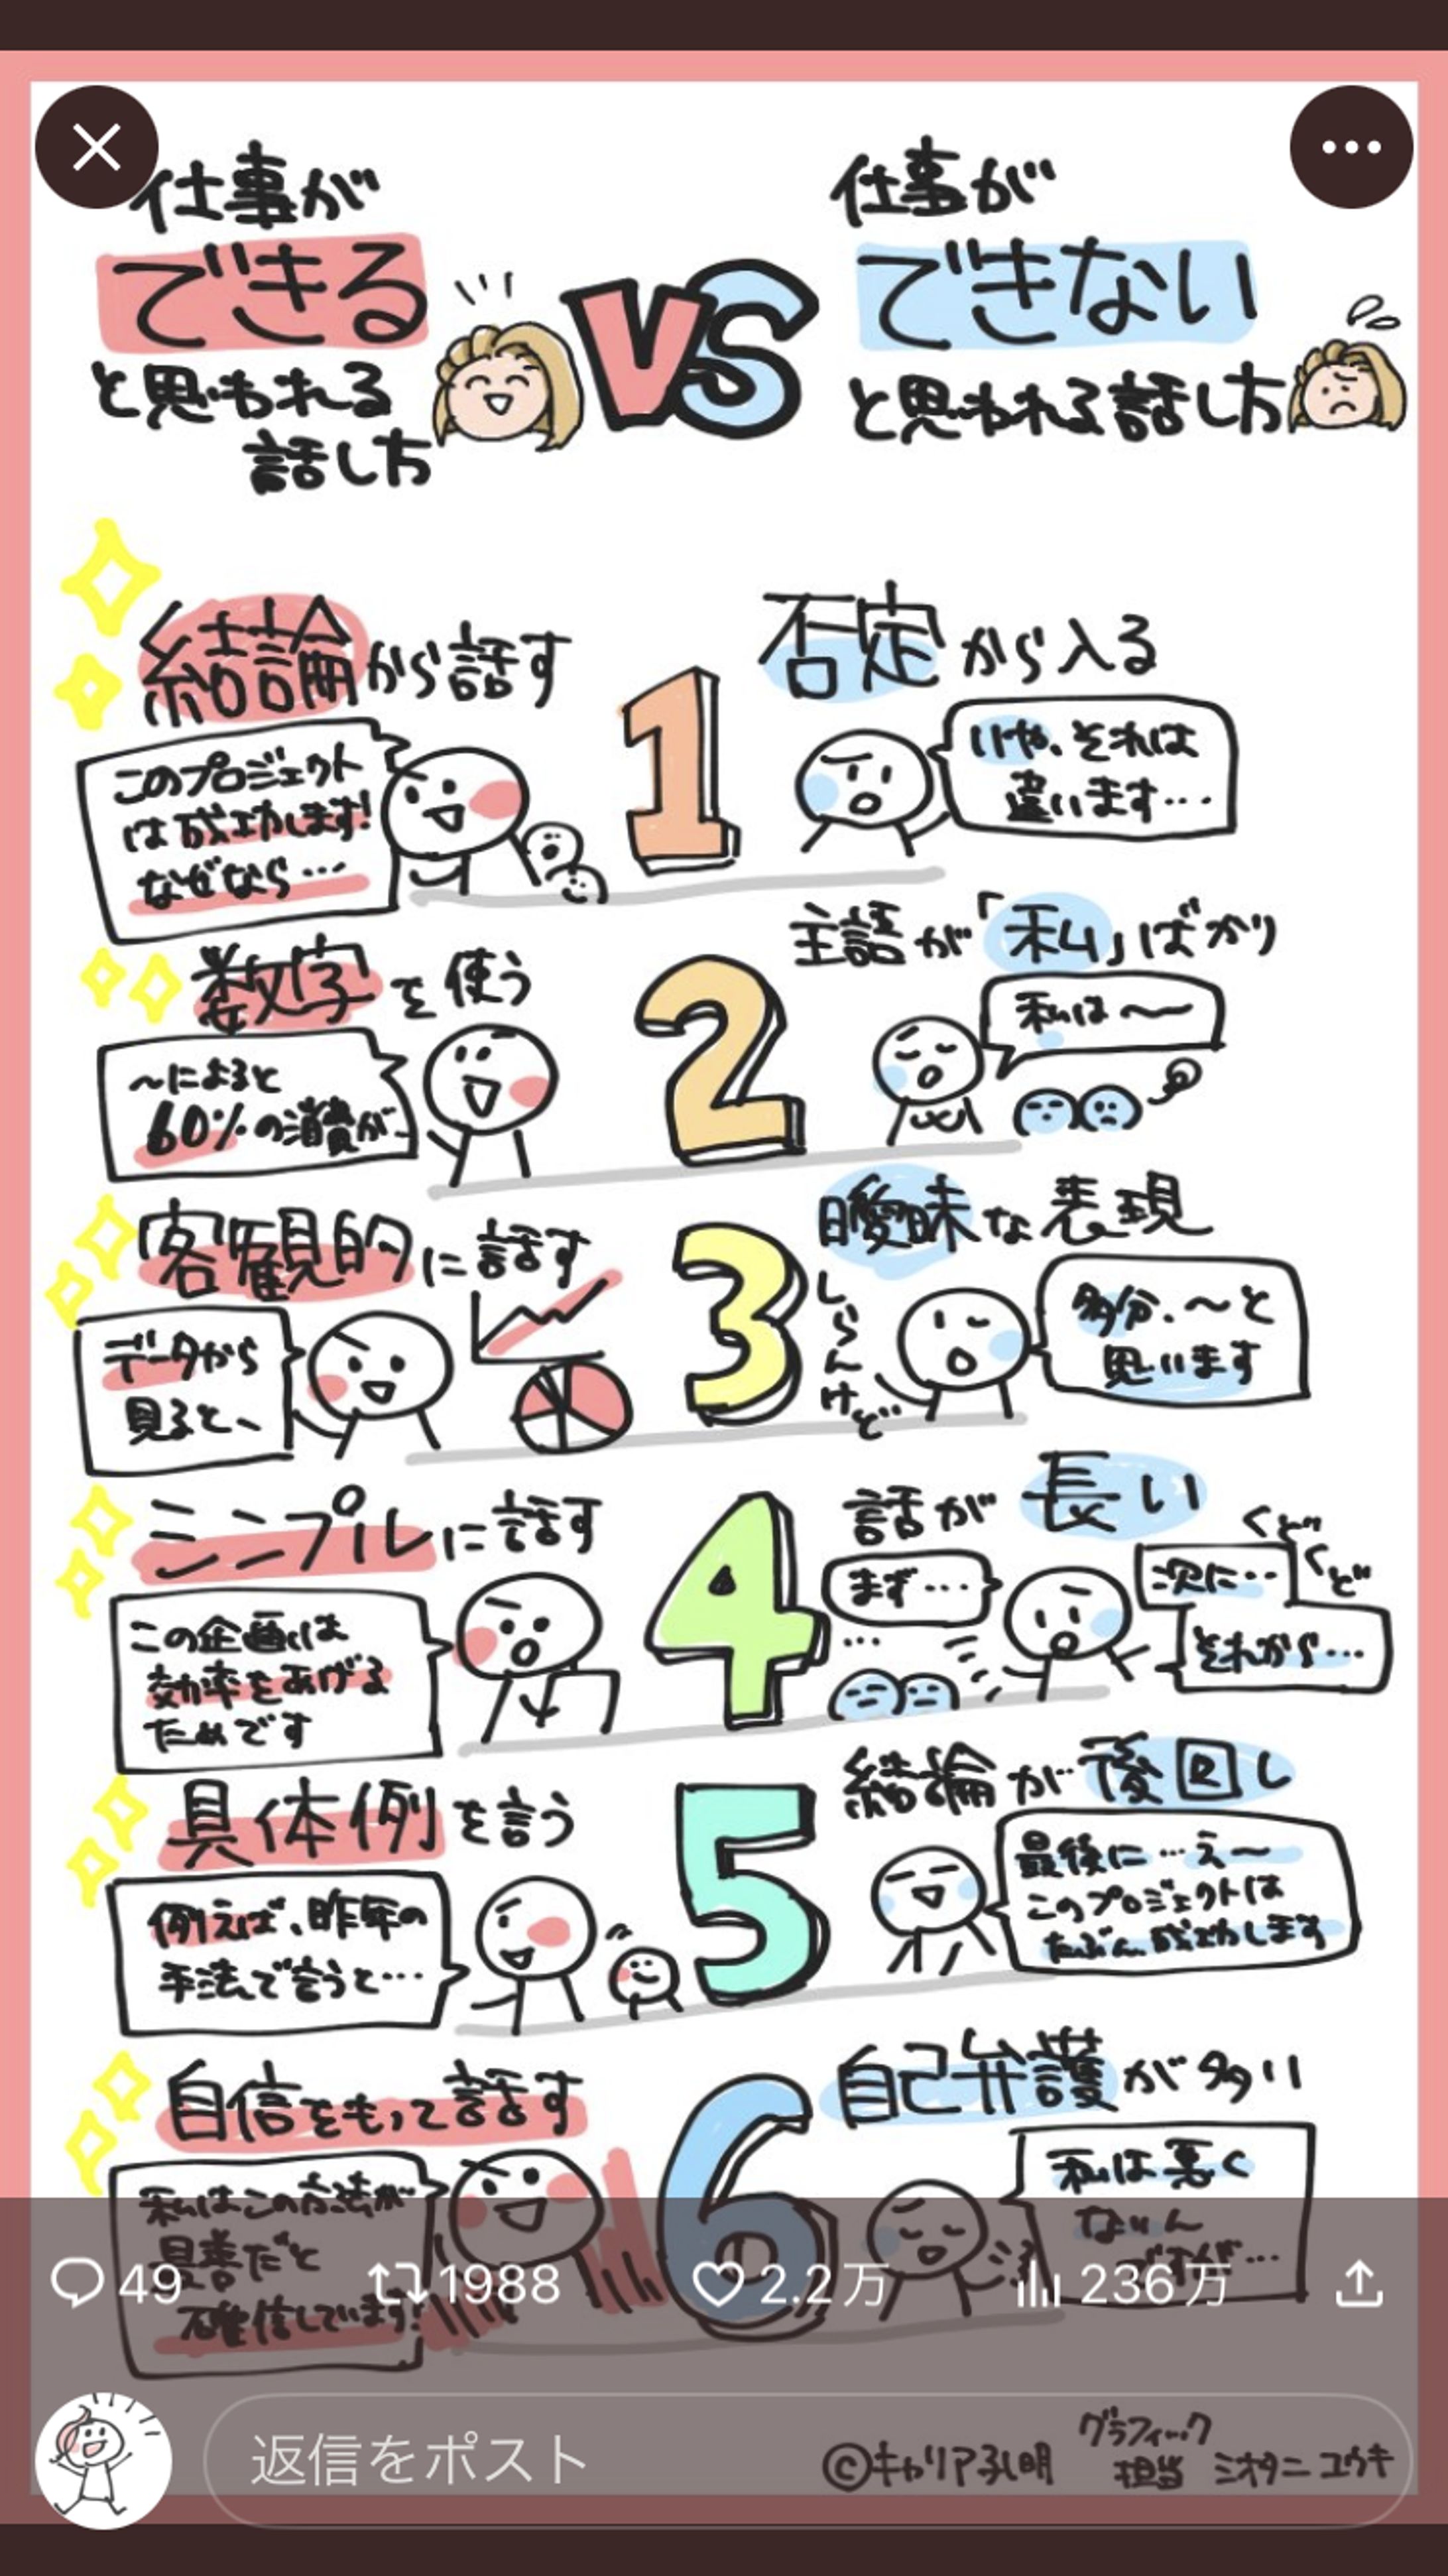 仕事が
できる
と思われる
話し方
VS
仕事が
できない
と思われる話し方
結論から話す
このプロジェクト
は成功します!
なぜなら…
1
否定から入る
いや、それは
違います…
数字を使う
〜によると
60%の消費が
2
主語が「私」ばかり
私は〜
客観的に話す
データから
見ると、
3
曖昧な表現
しらんけど
多分、〜と
思います
シンプルに話す
この企画は
効率をあげる
ためです
4
話が長い
まず…
くどくど
次に…
それから…
具体例を言う
例えば、昨年の
手法で言うと…
5
結論が後回し
最後に…え〜
このプロジェクトは
たぶん成功します
自信をもって話す
私はこの方法が
最善だと
確信しています!
6
自己弁護が多い
私は悪く
ないん
ですが…
49
1988
2.2万
236万
返信をポスト
©キャリア孔明
グラフィック
担当 ミオタニユウキ